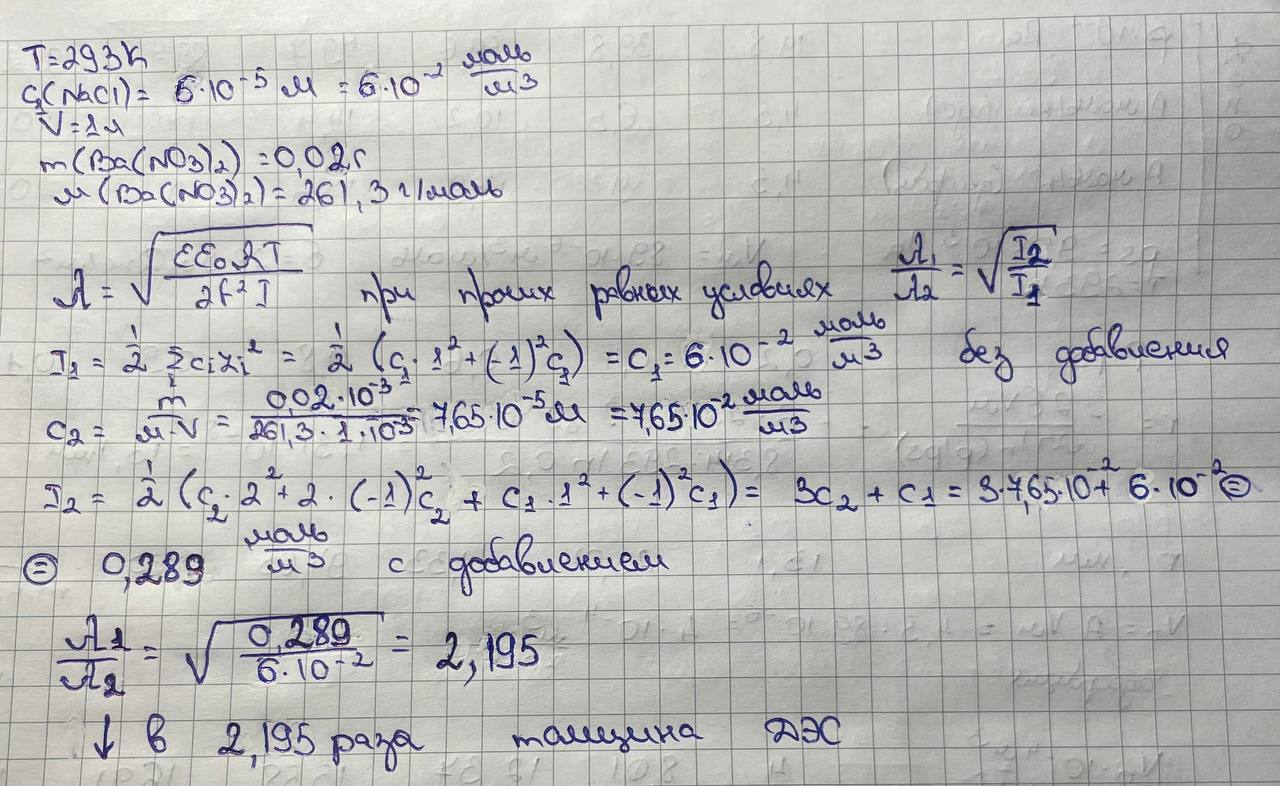 T=293К
C₁(NaCl) = 6·10⁻⁵ М = 6·10⁻² моль/м3
V=1л
m(Ba(NO3)2) = 0,02г
М(Ba(NO3)2) = 261,3 г/моль
λ = √(εε₀RT/2F²I) при прочих равных условиях λ₁/λ₂ = √(I₂/I₁)
I₁ = 1/2 Σ cᵢzᵢ² = 1/2 (c₁·1² + (-1)²c₁) = c₁ = 6·10⁻² моль/м3 без добавления
c₂ = m/М·V = 0,02·10⁻³/261,3·1·10⁻³ = 7,65·10⁻⁵М = 7,65·10⁻² моль/м3
I₂ = 1/2 (c₂·2² + 2·(-1)²c₂ + c₁·1² + (-1)²c₁) = 3c₂ + c₁ = 3·7,65·10⁻² + 6·10⁻² ⊜
⊜ 0,289 моль/м3 с добавлением
λ₁/λ₂ = √(0,289/6·10⁻²) = 2,195
↓ в 2,195 раза толщина ДЭС